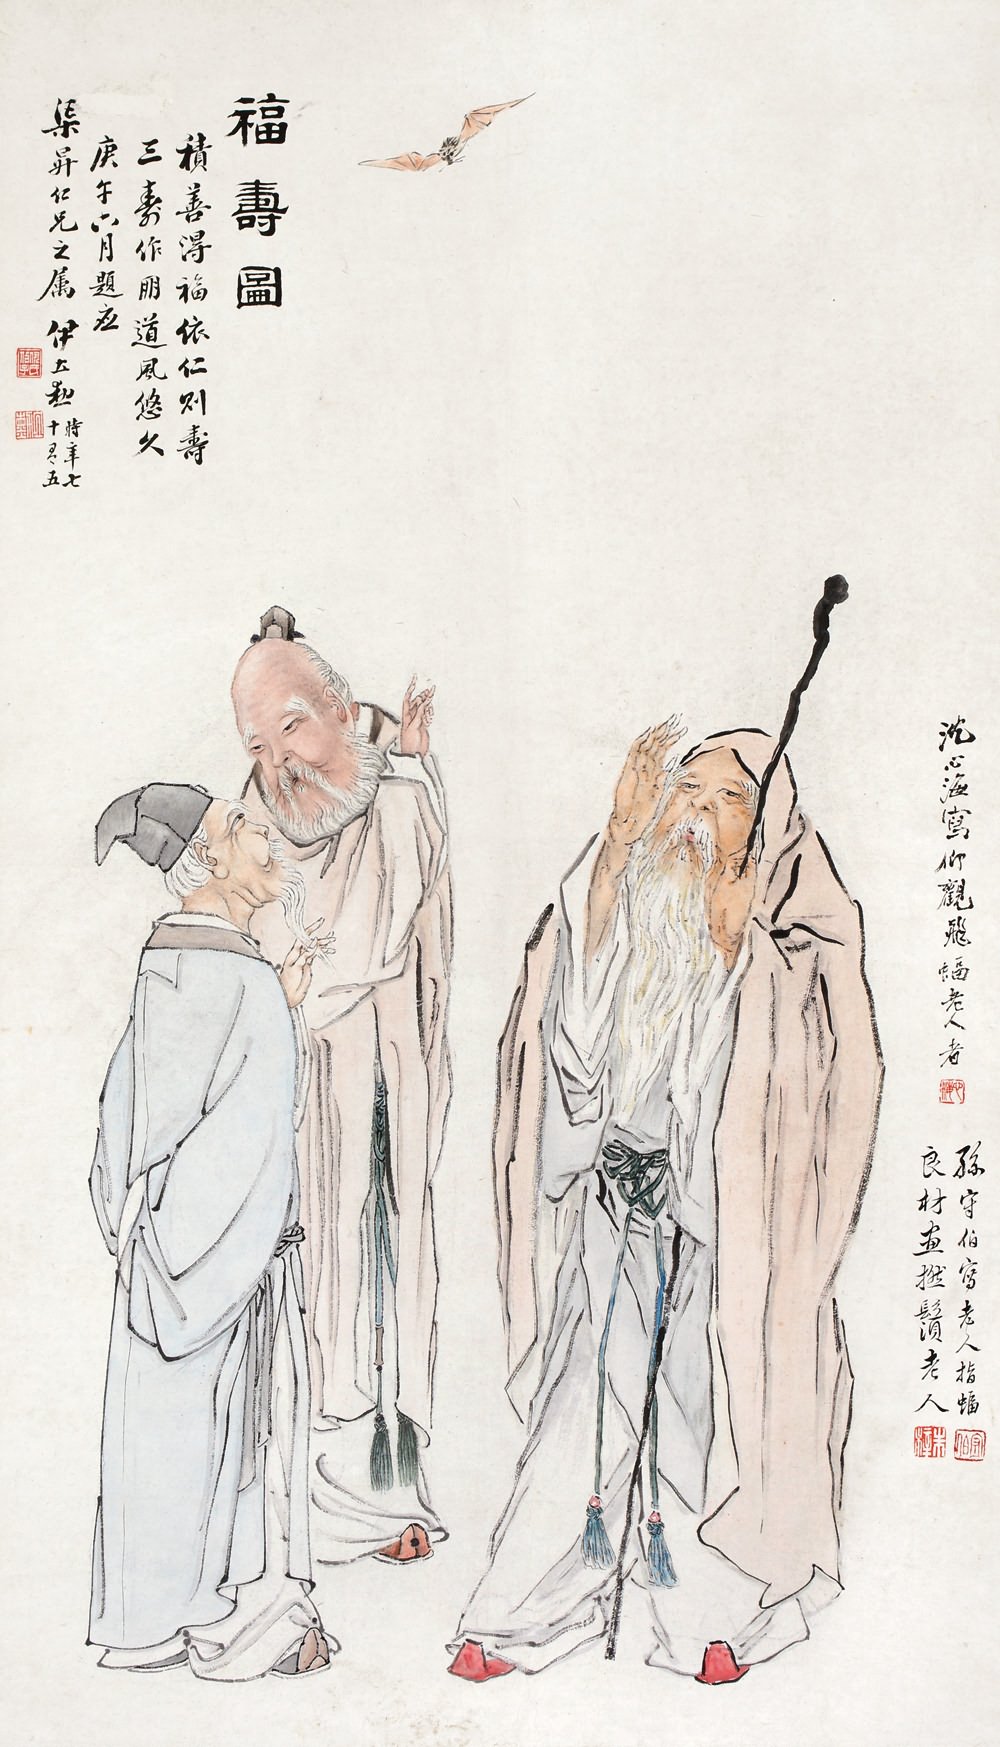 福壽圖
積善得福依仁則壽
三壽作朋道風悠久
庚午六月題應
渠昇仁兄之属 伊立勳
時年七
十有五
沈心海寫仰觀飛蝠老人者
孫守伯寫老人指蝠
良材画撚鬚老人